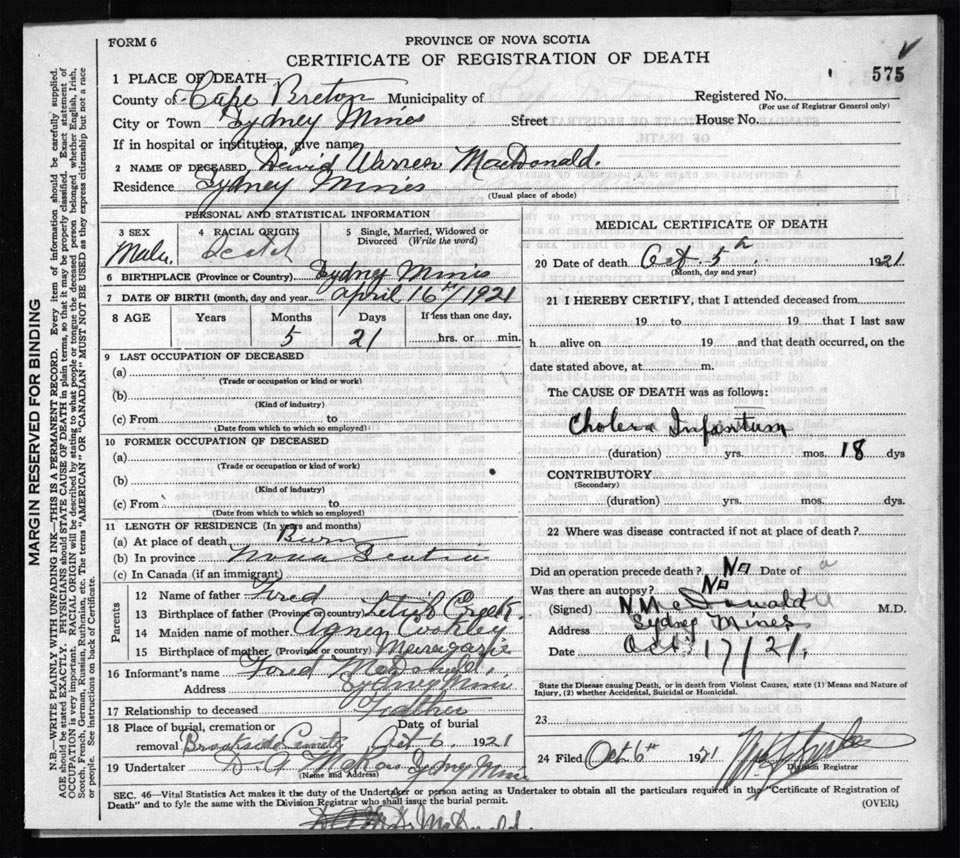 FORM 6
PROVINCE OF NOVA SCOTIA
CERTIFICATE OF REGISTRATION OF DEATH
575
1 PLACE OF DEATH
County of Cape Breton Municipality of
Registered No.
(For use of Registrar General only)
City or Town Sydney Mines Street House No.
If in hospital or institution, give name
2 NAME OF DECEASED David Warren MacDonald.
Residence Sydney Mines
(Usual place of abode)
PERSONAL AND STATISTICAL INFORMATION
3 SEX 4 RACIAL ORIGIN 5 Single, Married, Widowed or Divorced (Write the word)
Male. Scotch
6 BIRTHPLACE (Province or Country) Sydney Mines
7 DATE OF BIRTH (month, day and year) April 16th/1921
8 AGE Years Months Days If less than one day,
5 21 hrs. or min.
9 LAST OCCUPATION OF DECEASED
(a)
(Trade or occupation or kind or work)
(b)
(Kind of industry)
(c) From to
(Date from which to which so employed)
10 FORMER OCCUPATION OF DECEASED
(a)
(Trade or occupation or kind of work)
(b)
(Kind of industry)
(c) From to
(Date from which to which so employed)
11 LENGTH OF RESIDENCE (In years and months)
(a) At place of death Born
(b) In province Nova Scotia
(c) In Canada (if an immigrant)
Parents
12 Name of father Fored
13 Birthplace of father (Province or country) Creek
14 Maiden name of mother Agnes
15 Birthplace of mother (Province or country)
16 Informant's name Fored McDonald,
Address Sydney Mines
17 Relationship to deceased Father
18 Place of burial, cremation or removal Brookside Date of burial Oct 6. 1921
19 Undertaker D. A. Sydney Mines
(Name and Address)
MEDICAL CERTIFICATE OF DEATH
20 Date of death Oct. 5th 1921
(Month, day and year)
21 I HEREBY CERTIFY, that I attended deceased from
19 to 19 that I last saw
h alive on 19 and that death occurred, on the
date stated above, at m.
The CAUSE OF DEATH was as follows:
Cholera Infantum
(duration) yrs. mos. 18 dys
CONTRIBUTORY
(Secondary)
(duration) yrs. mos. dys.
22 Where was disease contracted if not at place of death?
Did an operation precede death? No Date of
Was there an autopsy? No
(Signed) N McDonald M.D.
Address Sydney Mines
Date Oct. 17/21.
State the Disease causing Death, or in death from Violent Causes, state (1) Means and Nature of
Injury, (2) whether Accidental, Suicidal or Homicidal.
23
24 Filed Oct 6th 1921
Division Registrar
SEC. 46—Vital Statistics Act makes it the duty of the Undertaker or person acting as Undertaker to obtain all the particulars required in the "Certificate of Registration of
Death" and to fyle the same with the Division Registrar who shall issue the burial permit.
(OVER)
MARGIN RESERVED FOR BINDING
N.B.—WRITE PLAINLY WITH UNFADING INK—THIS IS A PERMANENT RECORD. Every item of information should be carefully supplied.
AGE should be stated EXACTLY. PHYSICIANS should STATE CAUSE OF DEATH in plain terms, so that it may be properly classified. Exact statement of
OCCUPATION is very important. RACIAL ORIGIN will be described by stating to what people or tongue the deceased person belonged whether English, Irish,
Scotch, French, German, Russian, Ruthenian, etc. The terms "AMERICAN" OR "CANADIAN" MUST NOT BE USED as they express citizenship but not a race
or people. See instructions on back of Certificate.